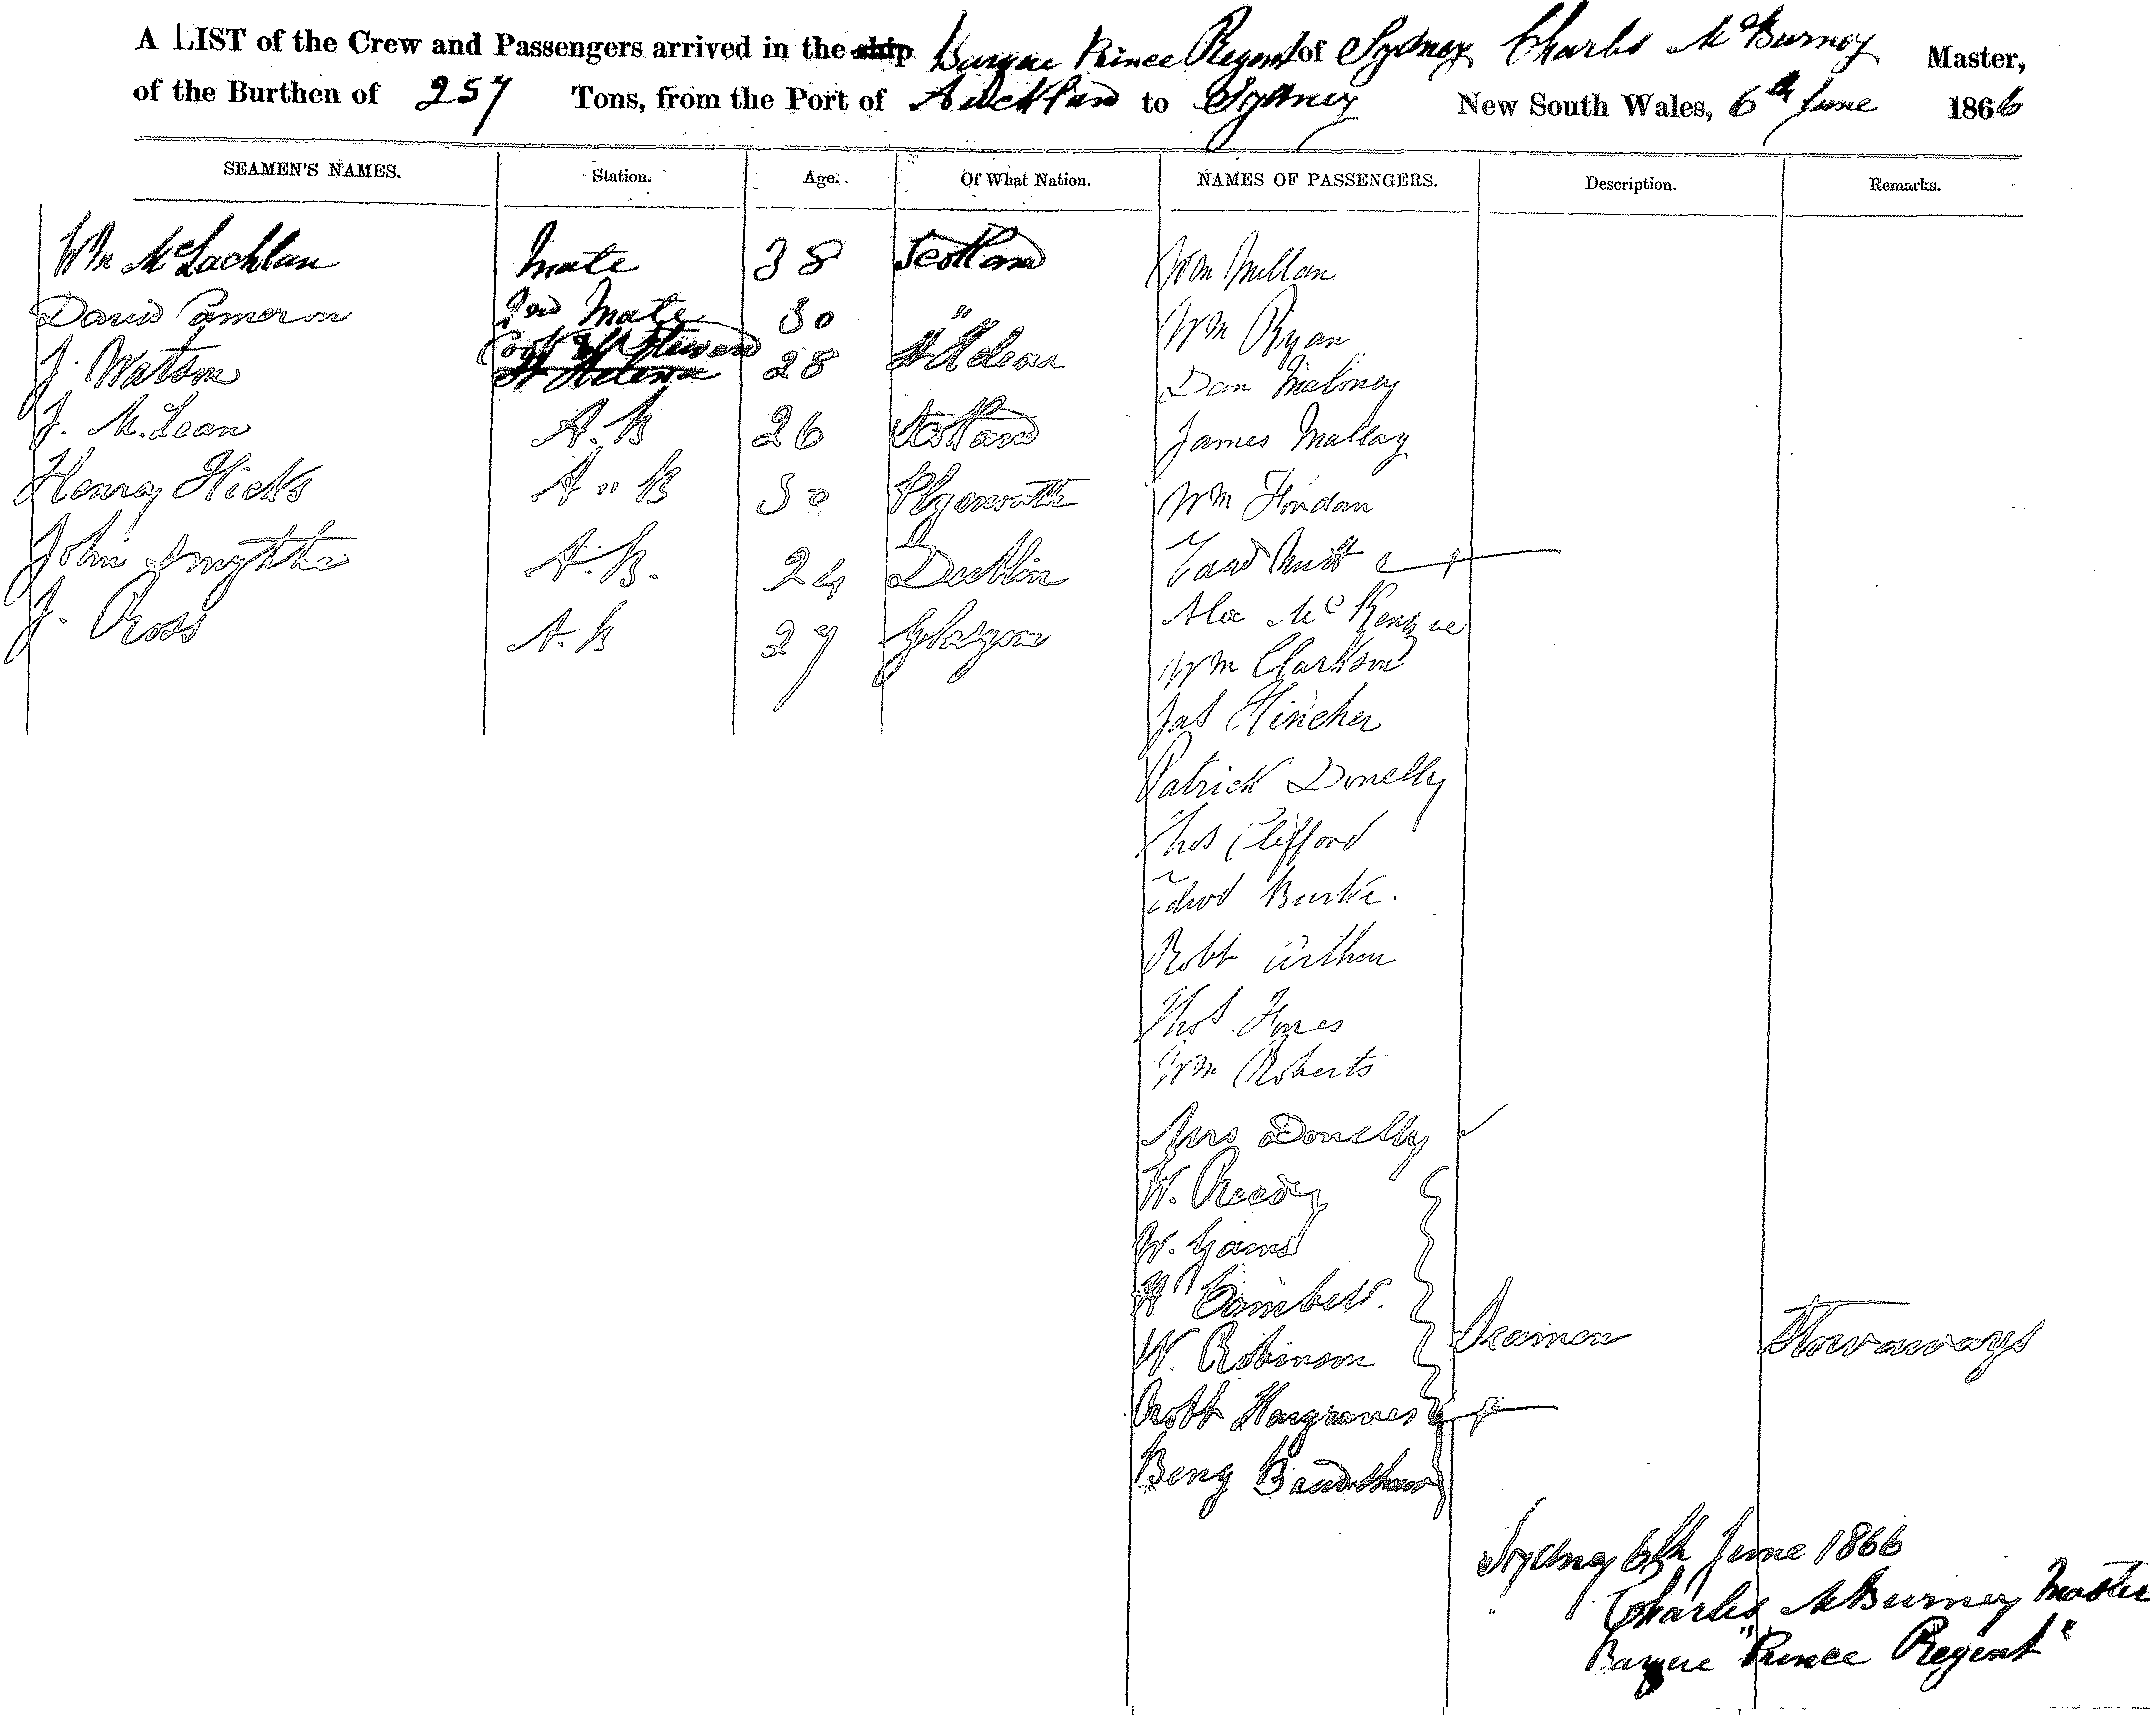 A LIST of the Crew and Passengers arrived in the ship Barque Prince Regent of Sydney Charles McBurney Master,
of the Burthen of 257 Tons, from the Port of Auckland to Sydney New South Wales, 6th June 1866
SEAMEN'S NAMES. Station. Age. Of What Nation. NAMES OF PASSENGERS. Description. Remarks.
Wm McLachlan Mate 38 Scotland Wm Millan
David Cameron 2nd Mate 30 " Wm Ryan
Cook & Steward
J. Watson St Helena 28 St Helena Dan Maloney
J. McLean A.B 26 Scotland James Mallay
Henry Hicks A.B 30 Plymouth Wm
John Smythe A.B. 24 Dublin
J. Ross A.B 27 Glasgow Alex McKenzie
Wm Clarkson
Jas Hincher
Patrick Donelly
Thos Clifford
Edwd Burke.
Robt Arthur
Thos
Wm Roberts
Mrs Donelly
W. Ready
W.
W. Robinson Seamen Stowaways
Robt Hargraves
Benj Bradshaw
Sydney 6th June 1866
Charles McBurney Master
Barque "Prince Regent"